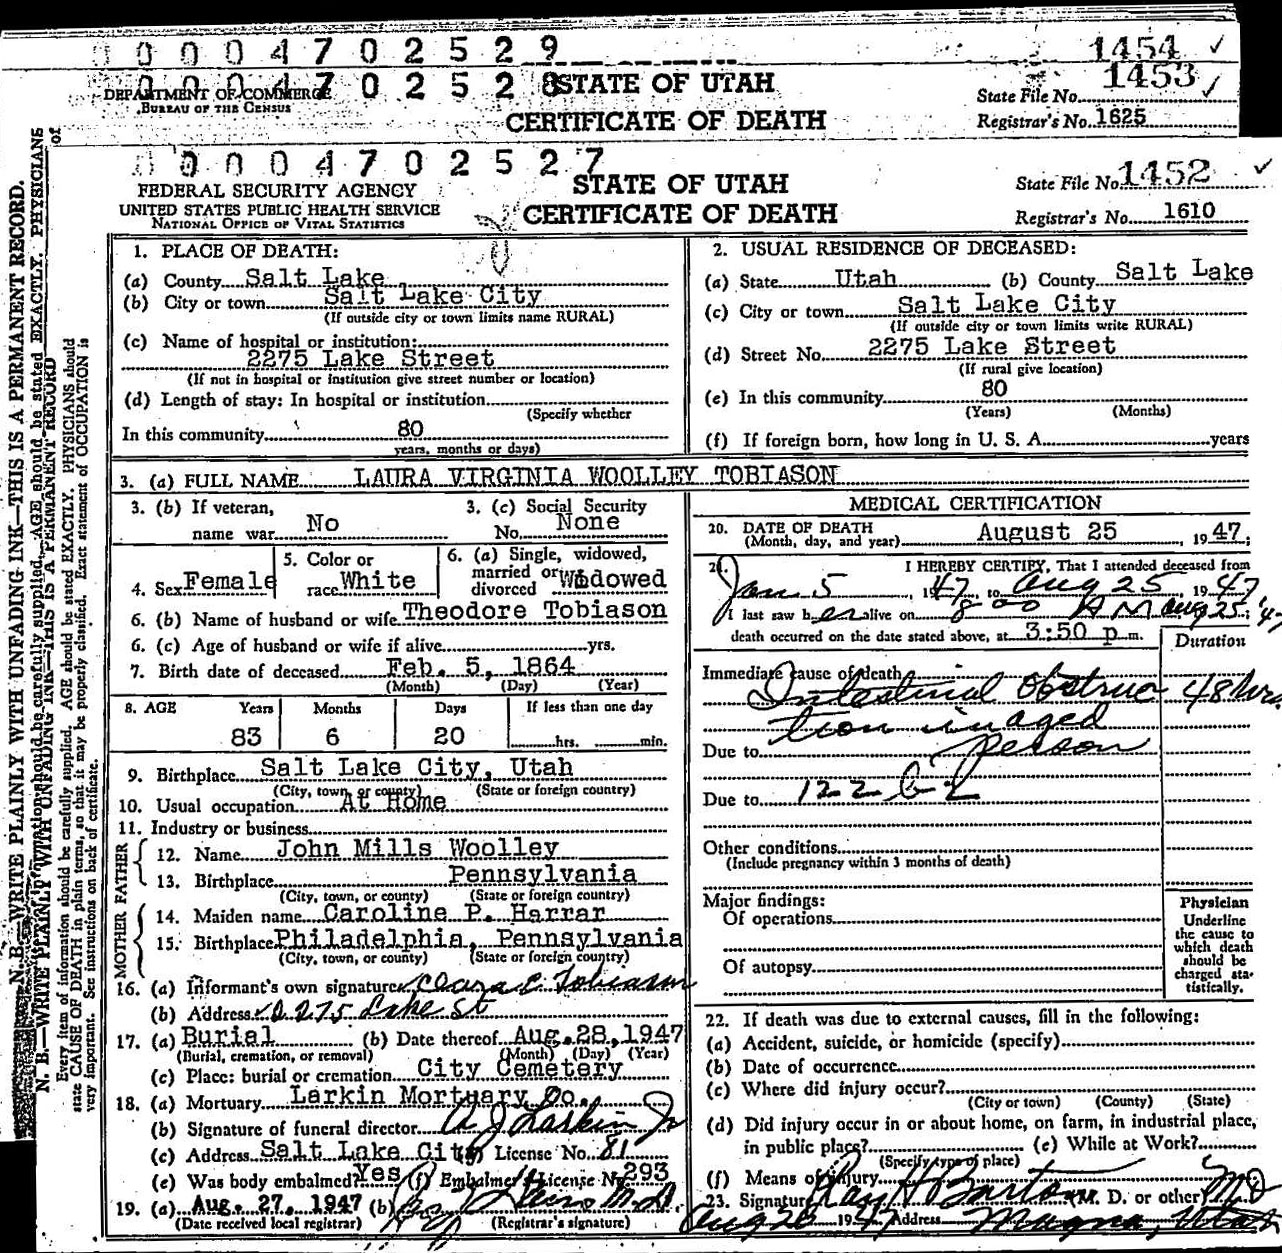 0 0 0 4 7 0 2 5 2 9
1454 ✓
0 0 0 4 7 0 2 5 2 8
STATE OF UTAH
1453 ✓
DEPARTMENT OF COMMERCE
BUREAU OF THE CENSUS
State File No.
CERTIFICATE OF DEATH
Registrar's No. 1625
0 0 0 4 7 0 2 5 2 7
FEDERAL SECURITY AGENCY
STATE OF UTAH
State File No. 1452 ✓
UNITED STATES PUBLIC HEALTH SERVICE
NATIONAL OFFICE OF VITAL STATISTICS
CERTIFICATE OF DEATH
Registrar's No. 1610
1. PLACE OF DEATH:
(a) County Salt Lake
(b) City or town Salt Lake City
(If outside city or town limits name RURAL)
(c) Name of hospital or institution:
2275 Lake Street
(If not in hospital or institution give street number or location)
(d) Length of stay: In hospital or institution
(Specify whether
In this community 80
years, months or days)
2. USUAL RESIDENCE OF DECEASED:
(a) State Utah (b) County Salt Lake
(c) City or town Salt Lake City
(If outside city or town limits write RURAL)
(d) Street No. 2275 Lake Street
(If rural give location)
(e) In this community 80
(Years) (Months)
(f) If foreign born, how long in U. S. A. years
3. (a) FULL NAME LAURA VIRGINIA WOOLLEY TOBIASON
3. (b) If veteran,
name war No
3. (c) Social Security
No. None
4. Sex Female
5. Color or
race White
6. (a) Single, widowed,
married or
divorced Widowed
6. (b) Name of husband or wife Theodore Tobiason
6. (c) Age of husband or wife if alive yrs.
7. Birth date of deceased Feb. 5, 1864
(Month) (Day) (Year)
8. AGE Years Months Days If less than one day
83 6 20 hrs. min.
9. Birthplace Salt Lake City, Utah
(City, town, or county) (State or foreign country)
10. Usual occupation At Home
11. Industry or business
FATHER
12. Name John Mills Woolley
13. Birthplace Pennsylvania
(City, town, or county) (State or foreign country)
MOTHER
14. Maiden name Caroline P. Harrar
15. Birthplace Philadelphia, Pennsylvania
(City, town, or county) (State or foreign country)
16. (a) Informant's own signature Clara E. Tobiason
(b) Address 2275 Lake St
17. (a) Burial (b) Date thereof Aug. 28, 1947
(Burial, cremation, or removal) (Month) (Day) (Year)
(c) Place: burial or cremation City Cemetery
18. (a) Mortuary Larkin Mortuary Co.
(b) Signature of funeral director A J Larkin Jr
(c) Address Salt Lake City License No. 81
(e) Was body embalmed? Yes (f) Embalmer License No. 293
19. (a) Aug. 27, 1947 (b) M.D.
(Date received local registrar) (Registrar's signature)
MEDICAL CERTIFICATION
20. DATE OF DEATH
(Month, day, and year) August 25, 1947;
21. I HEREBY CERTIFY, That I attended deceased from
Jan 5, 1947, to Aug 25, 1947
I last saw her alive on 8:00 AM Aug 25, '47
death occurred on the date stated above, at 3:50 p m.
Duration
Immediate cause of death
Intestinal obstruc 48 hrs.
tion in aged
Due to person
Due to 122 b-2
Other conditions
(Include pregnancy within 3 months of death)
Major findings:
Of operations
Of autopsy
Physician
Underline
the cause to
which death
should be
charged sta-
tistically.
22. If death was due to external causes, fill in the following:
(a) Accident, suicide, or homicide (specify)
(b) Date of occurrence
(c) Where did injury occur?
(City or town) (County) (State)
(d) Did injury occur in or about home, on farm, in industrial place,
in public place? (e) While at Work?
(Specify type of place)
(f) Means of injury
23. Signature Ray H Barton (M. D. or other) MD
Aug 26 1947 Address Magna, Utah
N. B.—WRITE PLAINLY WITH UNFADING INK—THIS IS A PERMANENT RECORD.
Every item of information should be carefully supplied. AGE should be stated EXACTLY. PHYSICIANS should
state CAUSE OF DEATH in plain terms, so that it may be properly classified. Exact statement of OCCUPATION is
very important. See instructions on back of certificate.